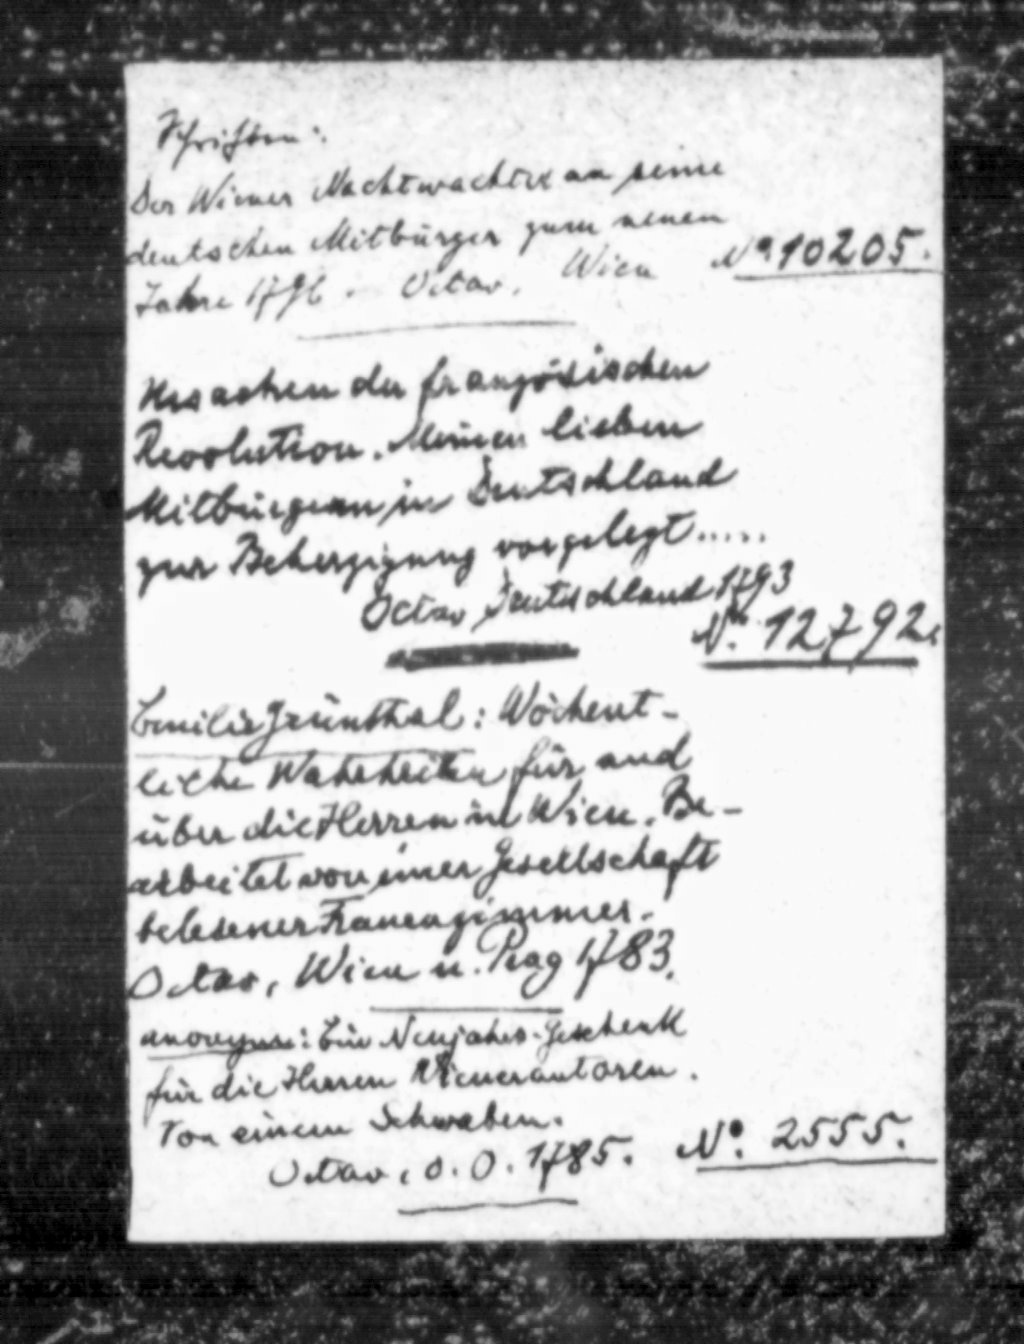 Schriften:
Der Wiener Nachtwachter an seine
deutschen Mitbürger zum neuen
Jahre 1796 - Octav. Wien No. 10205.
Ursachen der französischen
Revolution. Meinen lieben
Mitbürgern in Deutschland
zur Beherzigung vorgelegt.....
Octav Deutschland 1793
No. 12792.
Emilie Grünthal: Wöchent-
liche Wahrheiten für und
über die Herren in Wien. Be-
arbeitet von einer Gesellschaft
belesener Frauenzimmer.
Octav, Wien u. Prag 1783.
anonym: Ein Neujahrs-Geschenk
für die Herren Wienerautoren.
Von einem Schwaben.
Octav, o. O. 1785. No. 2555.